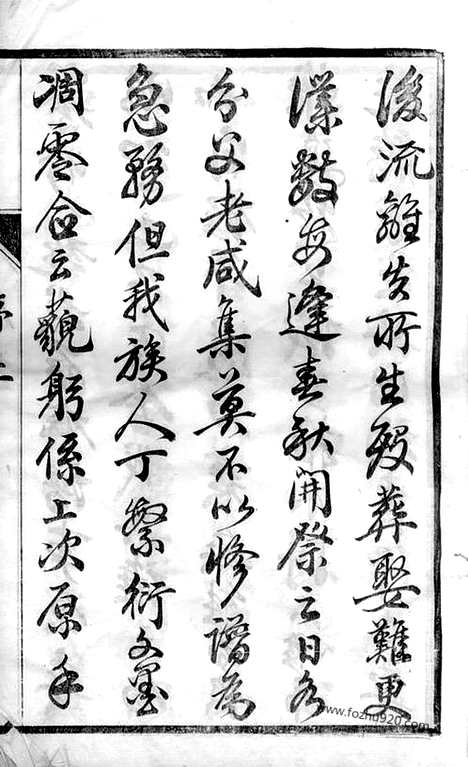 後流離失所生殁葬娶難更
僕數每逢春秋開祭之日各
分父老咸集莫不以修譜為
急務但我族人丁繁衍文墨
凋零合云藐躬係上次原手
www.fozhu920.com